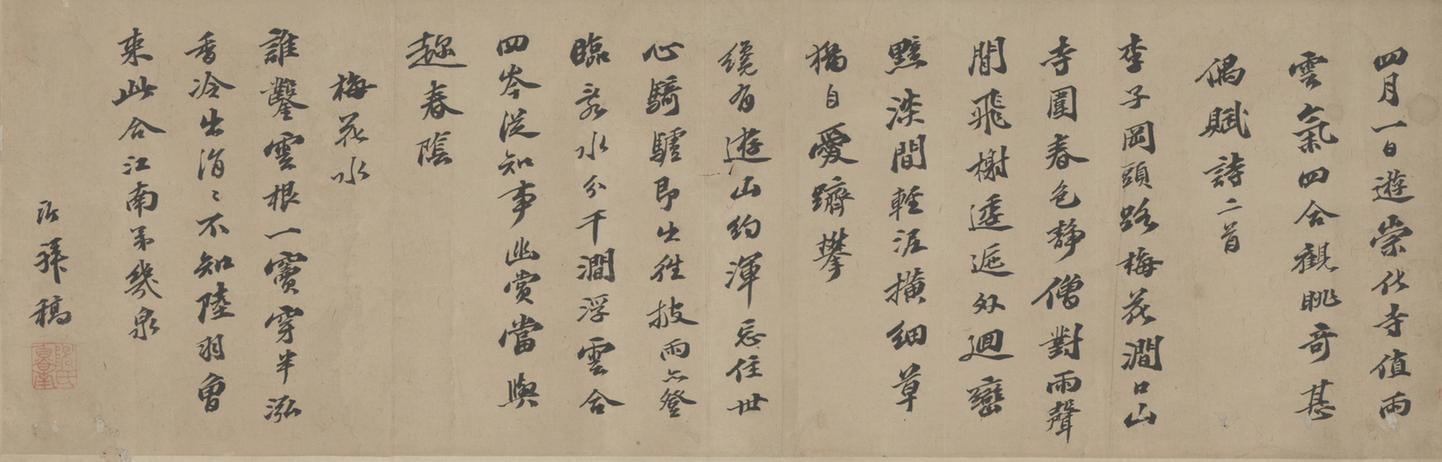 四月一日遊崇化寺值雨
雲氣四合觀眺奇甚
偶賦詩二首
李子岡頭路梅花澗口山
寺圍春色静僧對雨聲
閒飛榭逶迤外迴巒
黯淡間輕泥横細草
獨自愛躋攀
纔有遊山約渾忘住世
心騎驢即出徃披雨亦登
臨氵水分千澗浮雲合
四岑從知事幽賞當與
趂春陰
梅花水
誰鑿雲根一竇穿半泓
香冷出涓〻不知陸羽曾
来此合江南第幾泉
沂拜稿